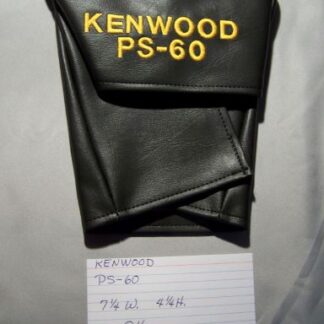 KENWOOD
PS-60
KENWOOD
PS-60
7¼ W. 4¼ H.